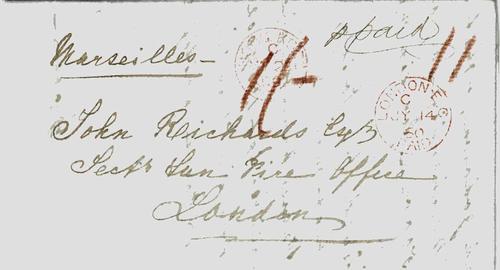 ppaid
Marseilles
1/-
11
LONDON E.C
C
MY 14
60
PAID
John Richards Esqr
Secty Sun Fire Office
London